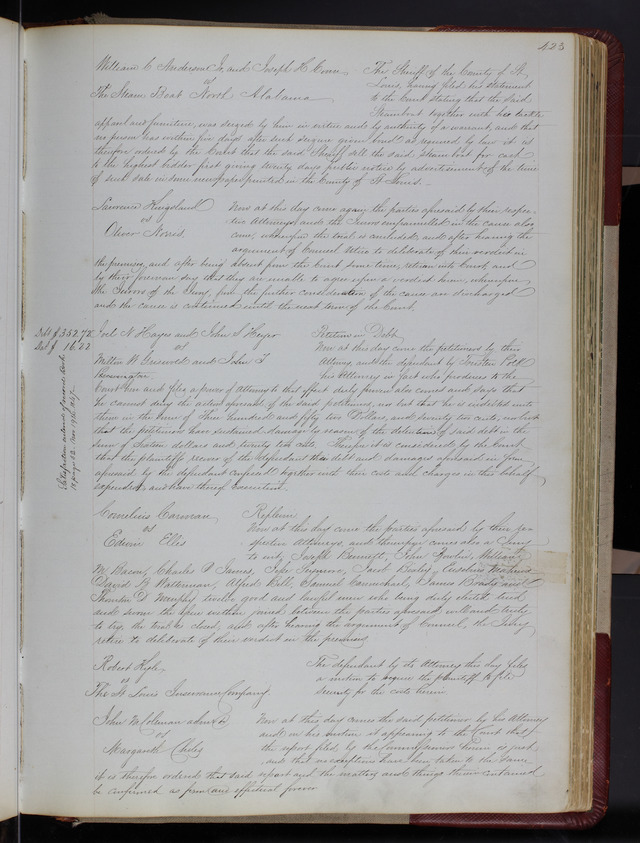 423
William C Anderson Jr, and Joseph H
vs
The Steam Boat North Alabama
The Sheriff of the County of St
Louis, having filed his statement
to the Court stating that the said
Steamboat together with her tackle
apparel and furniture, was seized by law in virtue and by authority of a warrant, and that
no person has within five days after such seizure given bond as required by law it is
therefore ordered by the Court that the said Sheriff sell the said steamboat for cash
to the highest bidder first giving twenty days public notice by advertisement of the time
of such sale in some newspaper printed in the County of St Louis.
Lawrence Kingsland
vs
Oliver Norris
Now at this day come again the parties aforesaid by their respec-
tive Attorneys, and the Jurors empannelled in the cause also
come, whereupon the trial is concluded, and after hearing the
arguments of Counsel retire to deliberate of their verdict in
the premises, and after being absent from the Court some time, return into Court, and
by their foreman say that they are unable to agree upon a verdict herein, whereupon
the Jurors of the Jury, from the further consideration of the cause are discharged
and the cause is continued until the next term of the Court.
Debt $352.72
Dam $ 16.22
Satisfaction entered of record Book
Joel N Hayes and John S
vs
and John T
Petition in Debt
Now at this day come the petitioners by their
Attorney and the defendant by Trusten Polk
his Attorney in fact who produces to the
Court here and files a power of Attorney to that effect duly proven also comes and says that
he cannot deny the action aforesaid of the said petitioners, nor but that he is indebted unto
them in the sum of Three hundred and fifty two Dollars and seventy two cents, nor but
that the petitioners have sustained damage by reason of the detention of said debt in the
sum of sixteen dollars and twenty two cents. Therefore it is considered by the Court
that the plaintiffs recover of the defendant their debt and damages aforesaid in form
aforesaid by the defendant confessed together with their costs and charges in this behalf
expended, and have thereof execution.
Cornelius Carman
vs
Edwin Ellis
Replevin
Now at this day come the parties aforesaid, by their res-
pective Attorneys, and thereupon comes also a Jury
to wit, Joseph Bennett, John William
W. Bacon, Charles P James, John Seymore, Jacob
David H Waterman, Alfred Bell, Samuel Carmichael, James Brady and
Thornton D. Murphy twelve good and lawful men who being duly elected tried
and sworn the issue within joined between the parties aforesaid well and truly
to try, the trial is closed, and after hearing the arguments of Counsel, the Jury
retire to deliberate of their verdict in the premises
Robert Kyle
vs
The St Louis Insurance Company
The defendant by its Attorney this day files
a motion to require the plaintiff to file
security for the costs herein
John M Coleman
vs
Margaret Chiles
Now at this day comes the said petitioner by his Attorney
and on his motion it appearing to the Court that
the report filed by the Commissioner herein is just,
and that no exceptions have been taken to the same,
it is therefore ordered that said report and the matters and things therein contained
be confirmed as firm and effectual forever